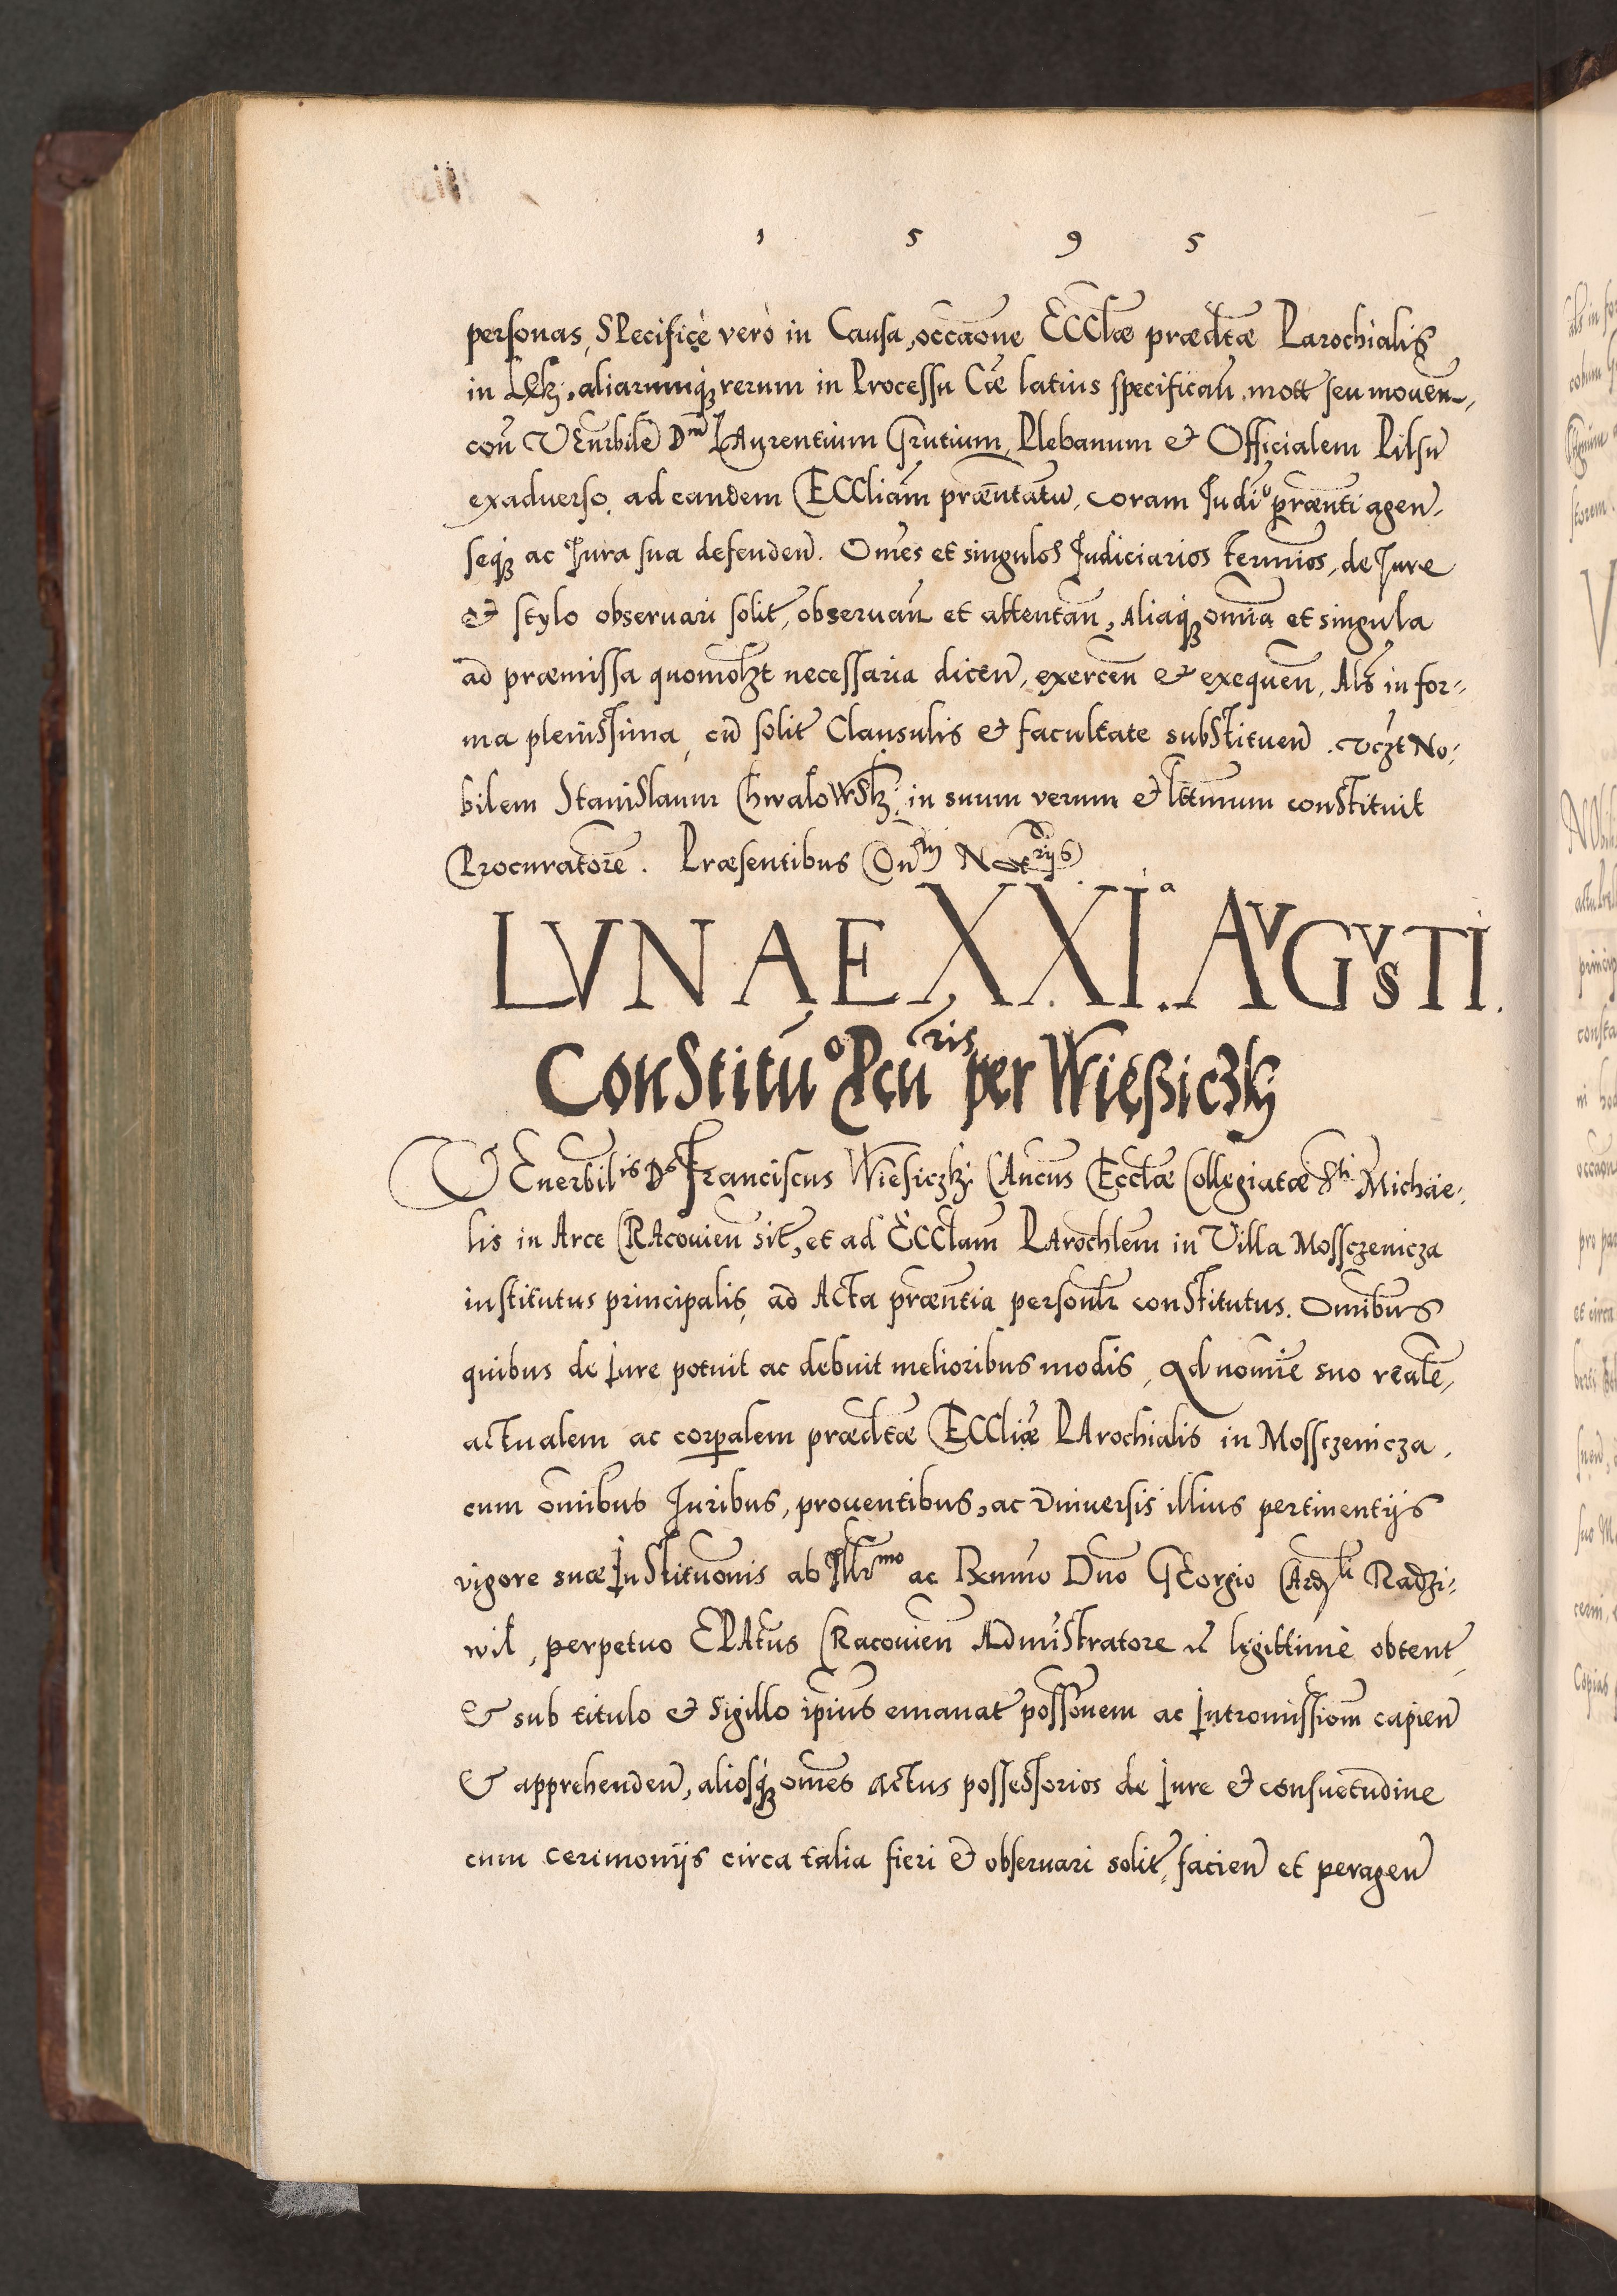 1 5 9 5
personas, SPecificè verò in Causa, occaōne ECCl̄æ prædc̄tæ Parochialis
in aliarumq́ꝫ rerum in Processu Cāe latius specifican̄, mott seu mouen̄,
con̄ VEnrbile Dnū LAurentium Grutium, Plebanum & Officialem Pilsn̄
exaduerso, ad eandem ECCliām præn̄tatū, coram Judīo præn̄ti agen̄,
seq́ꝫ ac Jura sua defenden̄. Om̄es et singulos Judiciarios termin̄os, de Jure
& stylo obseruari solit̄, obseruan̄ et attentan̄, Aliaq́ꝫ omn̄ia et singula
ad præmissa quomol̄zt necessaria dicen̄, exercen̄ & exequen̄, Al̄s in for-
ma plenissima, cū solit̄ Clausulis & facultate substituen̄. vczt No-
bilem Stanislaum ChwaloWSkj in suum verum & lttimum constituit
Procuratorē. Præsentibus
LVNAE XXIa. AVGVSTI.
Constitūo Pcuris per Więßiczkj
VEnerbilis Ds Franciscus Wiesiczkj CAncus Ecclæ Collegiatæ Sti Michae-
lis in Arce CRAcouien̄ sit̄, et ad ECClam PArochlem in Villa Mossczenicza
institutus principalis, ad Acta præn̄tia personlr constitutus. Omn̄ibus
quibus de Jure potuit ac debuit melioribus modis, Ad nomīe suo realē,
actualem ac corpalem prædctæ ECCliæ PArochialis in Mossczenicza,
cum omn̄ibus Juribus, prouentibus, ac Vniuersis illius pertinentijs
vigore suæ Institūonis ab Illrmo ac Rxmn̄o Dn̄o GEorgio CArdli Radzi-
wił, perpetuo EPAtus CRacouien̄ Admi̅stratore legittimè obtent̄,
& sub titulo & Sigillo ipius emanat̄ possōnem ac Intromissiom̄ capien̄
& apprehenden̄, aliosq́ꝫ om̄es actus possessorios de Jure & consuetudine
cum cerimonijs circa talia fieri & obseruari solit̄, facien̄ et peragen̄